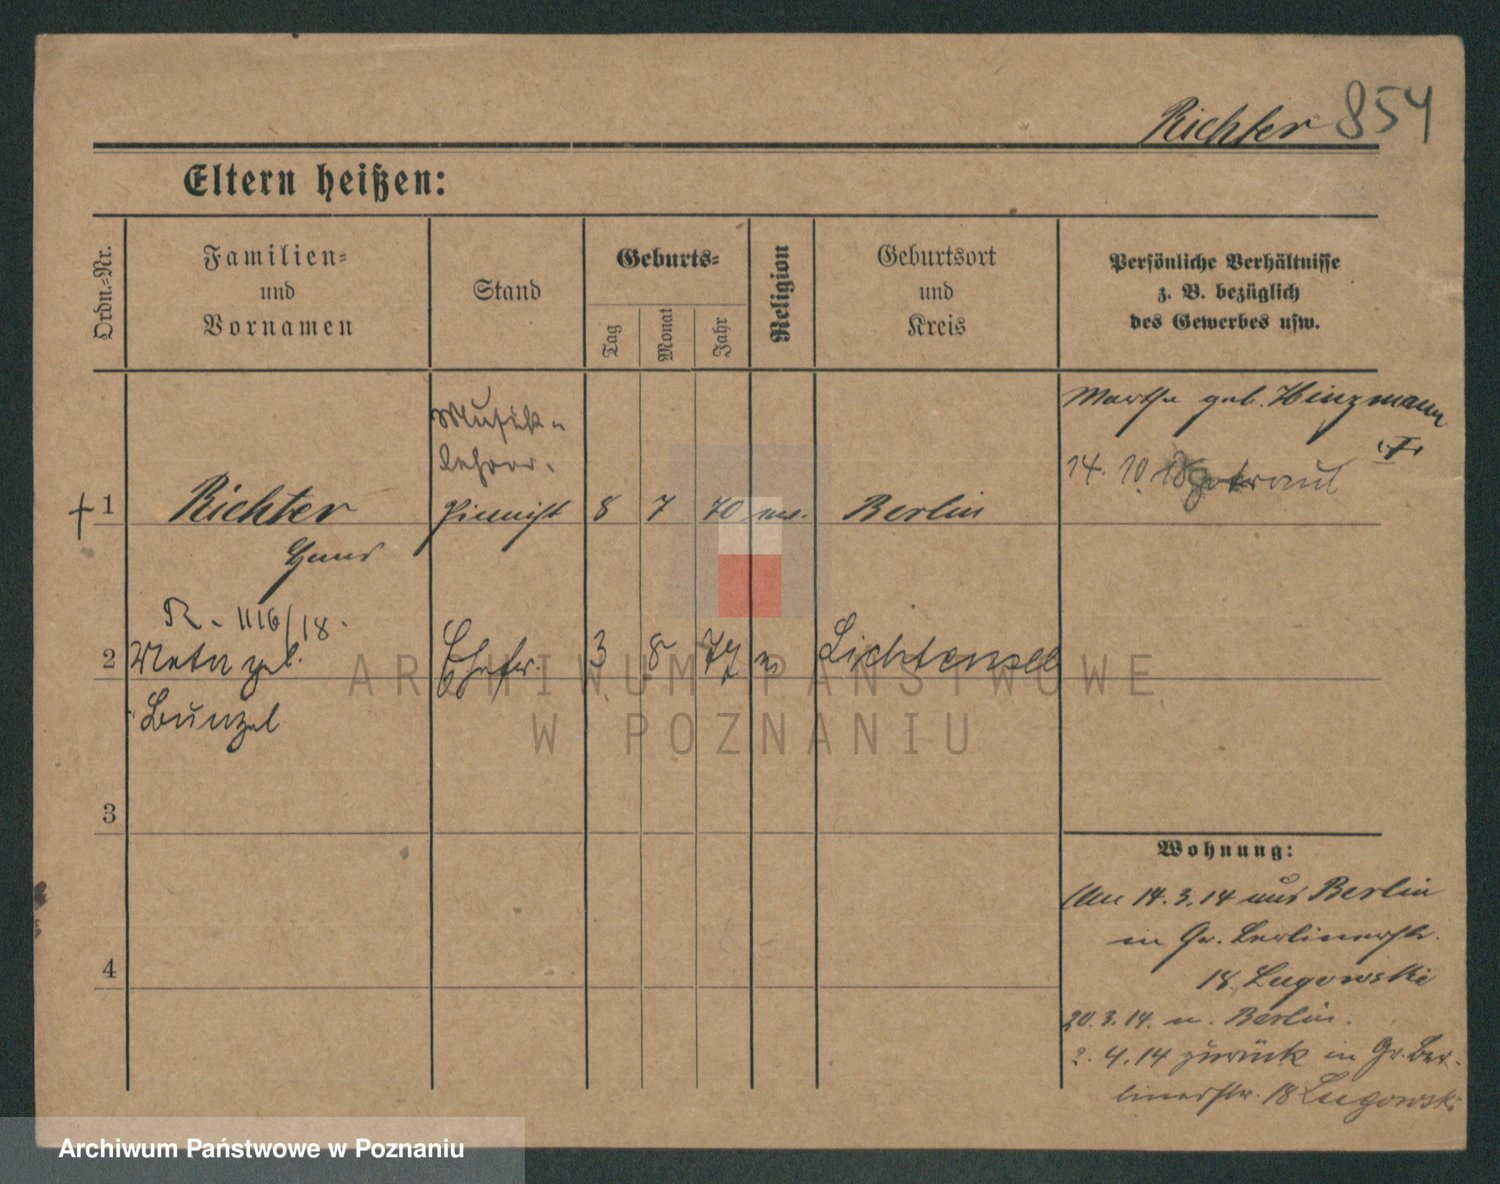 Richter 854
Eltern heißen:
Ordn.-Nr.
Familien-
und
Vornamen
Stand
Geburts-
Tag
Monat
Jahr
Religion
Geburtsort
und
Kreis
Persönliche Verhältnisse
z. B. bezüglich
des Gewerbes usw.
Musik-
lehrer.
Martha geb. Hinzmann
14. 10. 18 getraut
† 1 Richter Pianist 8 7 70 Berlin
Hans
R. 1116/18.
2 Meta geb. Ehefr. 3 8 77 Lichtensee
Bunzel
3
4
Wohnung:
An 14.3.14 aus Berlin
in Gr. Berlinerstr.
18 Lugowski
20.3.14. n. Berlin.
2.4.14 zurück in Gr. Ber-
linerstr. 18 Lugowski
ARCHIWUM PAŃSTWOWE
W POZNANIU
Archiwum Państwowe w Poznaniu